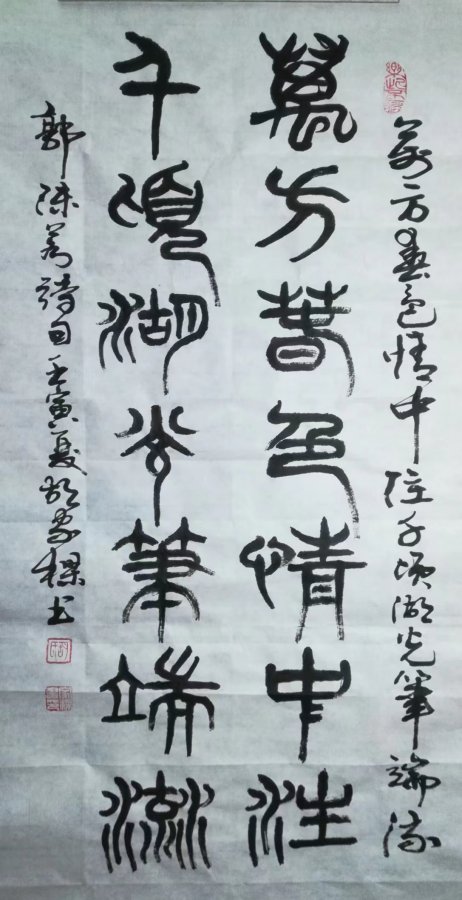 萬方春色情中注千頃湖光筆端流
萬方春色情中注
千頃湖光筆端流
郭陳詩句壬寅夏書